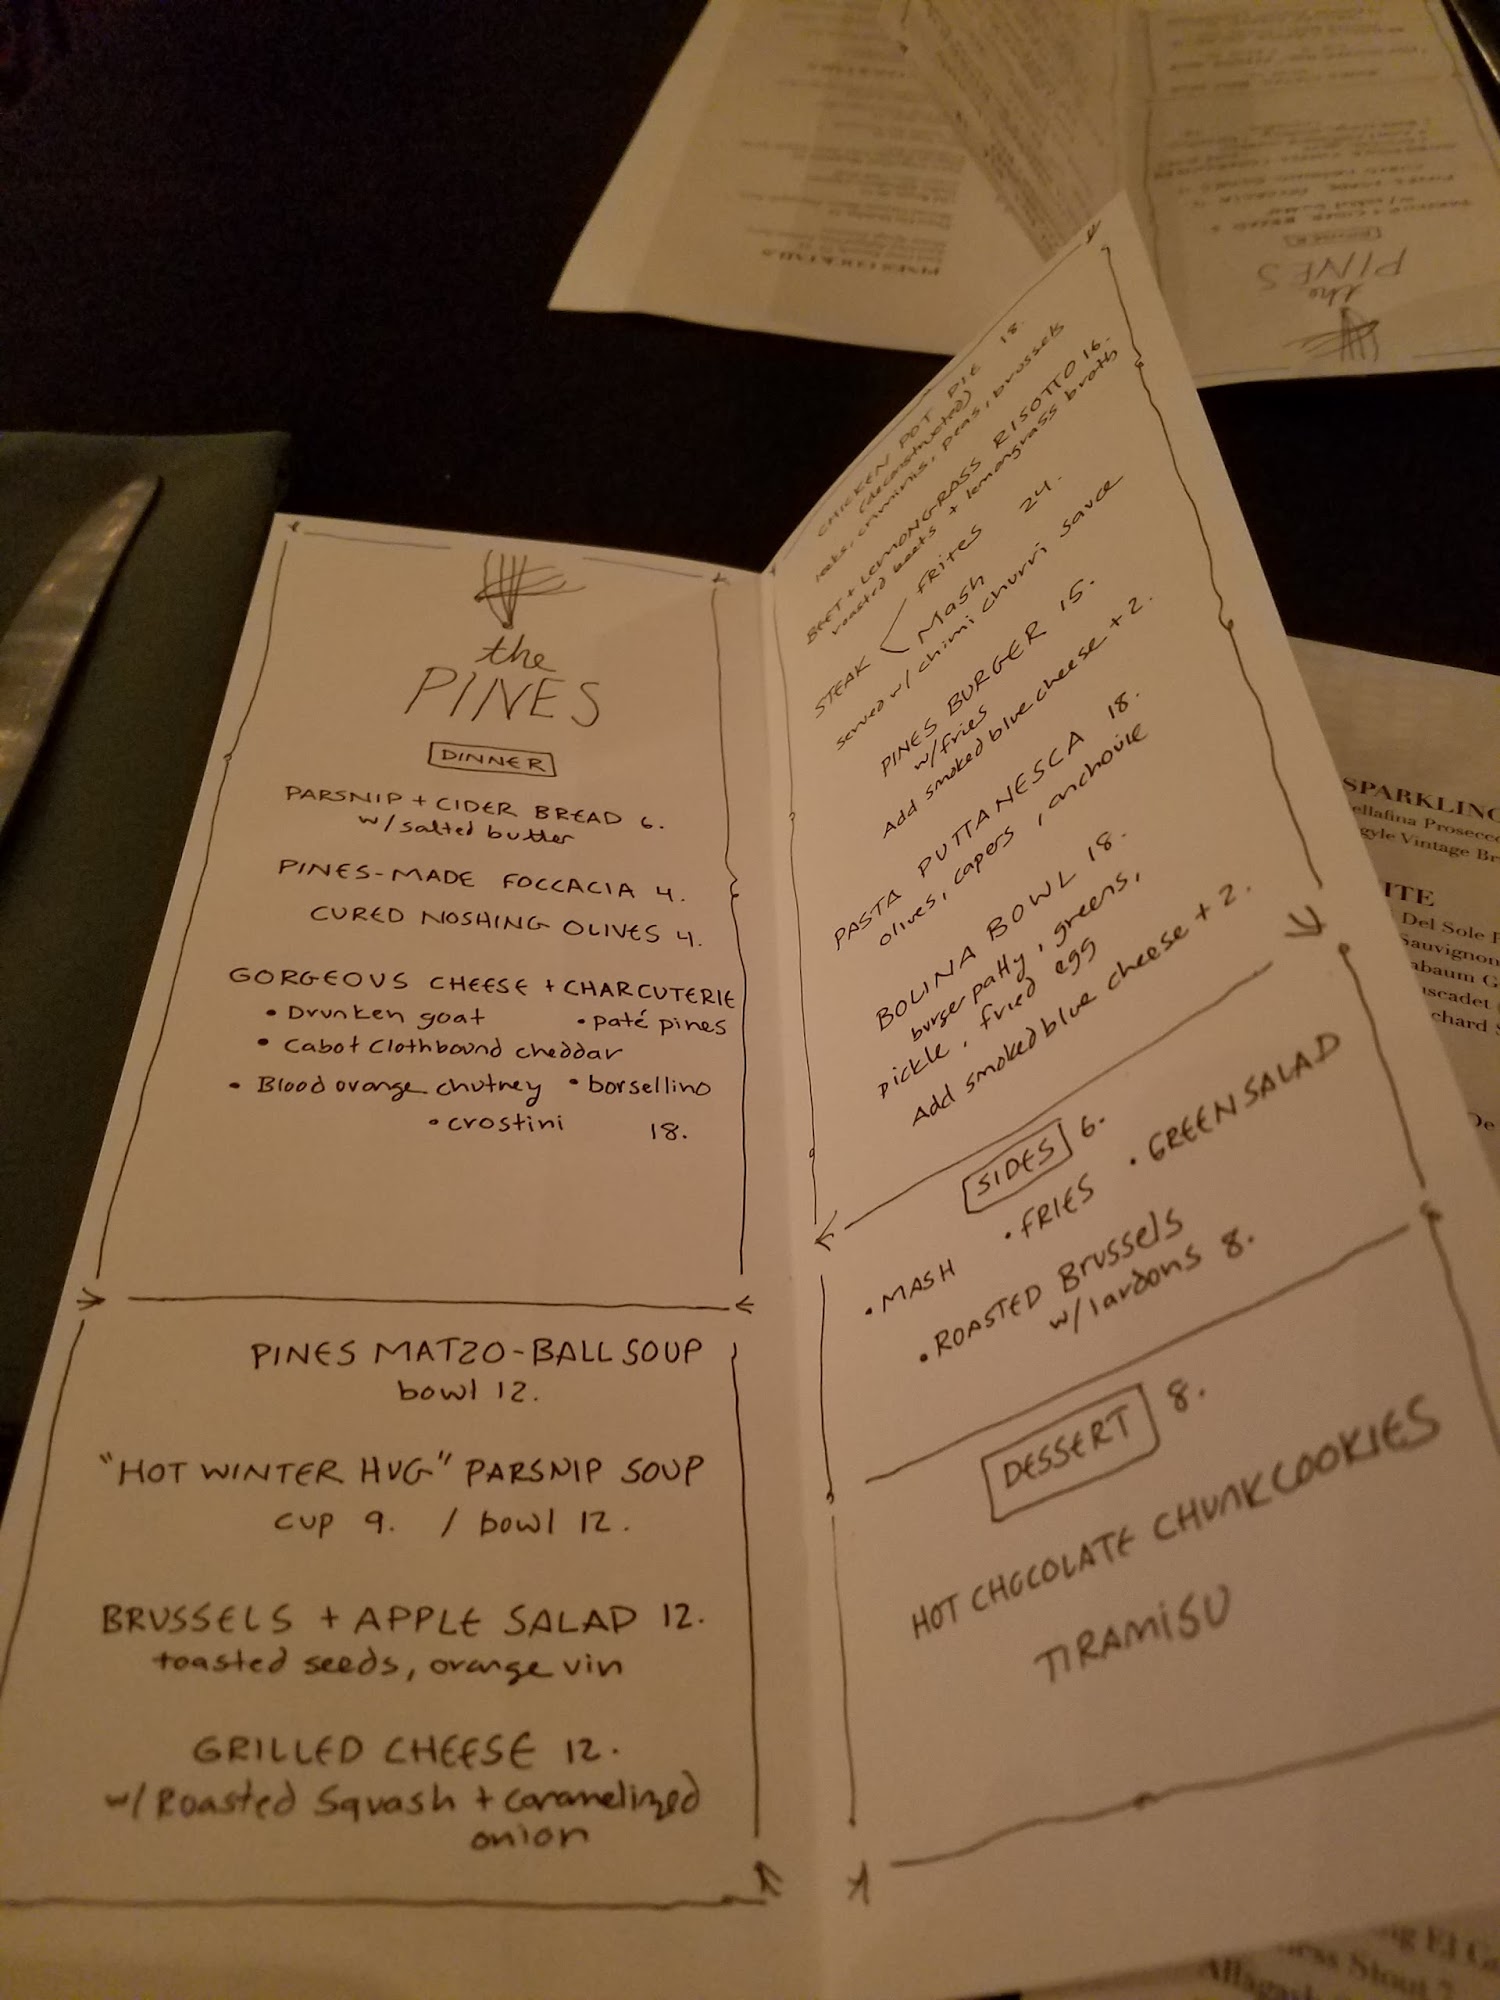 the
PINES
DINNER
PARSNIP + CIDER BREAD 6.
w/salted butter
PINES-MADE FOCCACIA 4.
CURED NOSHING OLIVES 4.
GORGEOUS CHEESE + CHARCUTERIE
• Drunken goat • paté pines
• Cabot Clothbound cheddar
• Blood orange chutney • borsellino
• crostini 18.
PINES MATZO-BALL SOUP
bowl 12.
"HOT WINTER HUG" PARSNIP SOUP
cup 9. / bowl 12.
BRUSSELS + APPLE SALAD 12.
toasted seeds, orange vin
GRILLED CHEESE 12.
w/ Roasted Squash + caramelized
onion
CHICKEN POT PIE 18.
(deconstructed)
leeks, criminis, peas, brussels
BEET + LEMONGRASS RISOTTO 16.
roasted beets + lemongrass broth
STEAK frites 24.
Mash
served w/ chimi churri sauce
PINES BURGER 15.
w/fries
Add smoked blue cheese + 2.
PASTA PUTTANESCA 18.
olives, capers, anchovie
BOLINA BOWL 18.
burger patty, greens,
pickle, fried egg
Add smoked blue cheese + 2.
SIDES 6.
• MASH • FRIES • GREEN SALAD
• ROASTED Brussels
w/lardons 8.
DESSERT 8.
HOT CHOCOLATE CHUNK COOKIES
TIRAMISU
the
PINES
DINNER
SPARKLING
Prosecco
Vintage
Del Sole
Sauvignon
Stout 7